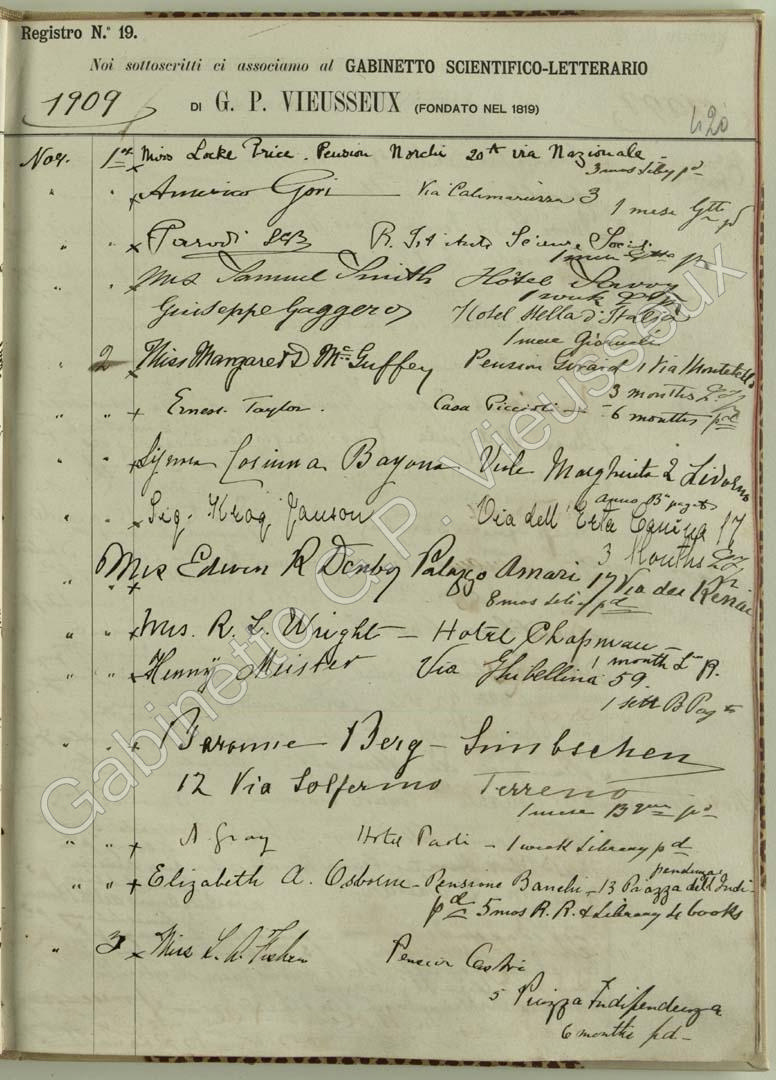 Registro N.° 19.
Noi sottoscritti ci associamo al GABINETTO SCIENTIFICO-LETTERARIO
1909
DI G. P. VIEUSSEUX (FONDATO NEL 1819)
420
Nov. 1st Miss Locke Price. Pension Norchi 20A via Nazionale
3 mos Liby pd
" " x Americo Gori Via Calimaruzza 3
1 mese
" " x Parodi R. Ist. Scienze Sociali
1 mese pd
" " x Mrs Samuel Smith Hôtel Savoy
1 week
Giuseppe Gaggero Hotel Hella d'Italia
1 mese Giornali
" 2 x Miss Margaret D McGuffey Pension Girard 1 Via Montebello
3 months
" " x Ernest Taylor. Casa Piccioli
6 months pd
" " x Corinna Bayona Viale Margherita 2 Livorno
anno B pagato
" " x Sig. Krag Janson Via dell' Erta Canina 17
3 Months
" " x Mrs Edwin R Denby Palazzo Amari 17 Via dei Renai
8 mos pd
" " x Mrs. R. L. Wright — Hotel Chapman —
1 month
" " x Henny Meister Via Ghibellina 59.
1 sett B Pag to
" " x Baronne Berg-Simbschen
12 Via Solferino Terreno
1 mese pd
" " x A. Gray Hotel Paoli - 1 week Library pd
" " x Elizabeth A. Osborne - Pensione Banchi - 13 Piazza dell' Indi-
pendenza
pd 5 mos R. R. & Library 4 books
" 3 x Miss L. A. Pension Castri
5 Piazza Indipendenza
6 months pd
Gabinetto G.P. Vieusseux